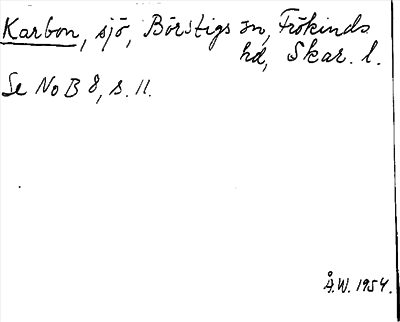 Karbon, sjö, Börstigs sn, Frökinds
hd, Skar. l.
Se No B 8, s. 11.
Å.W. 1954.